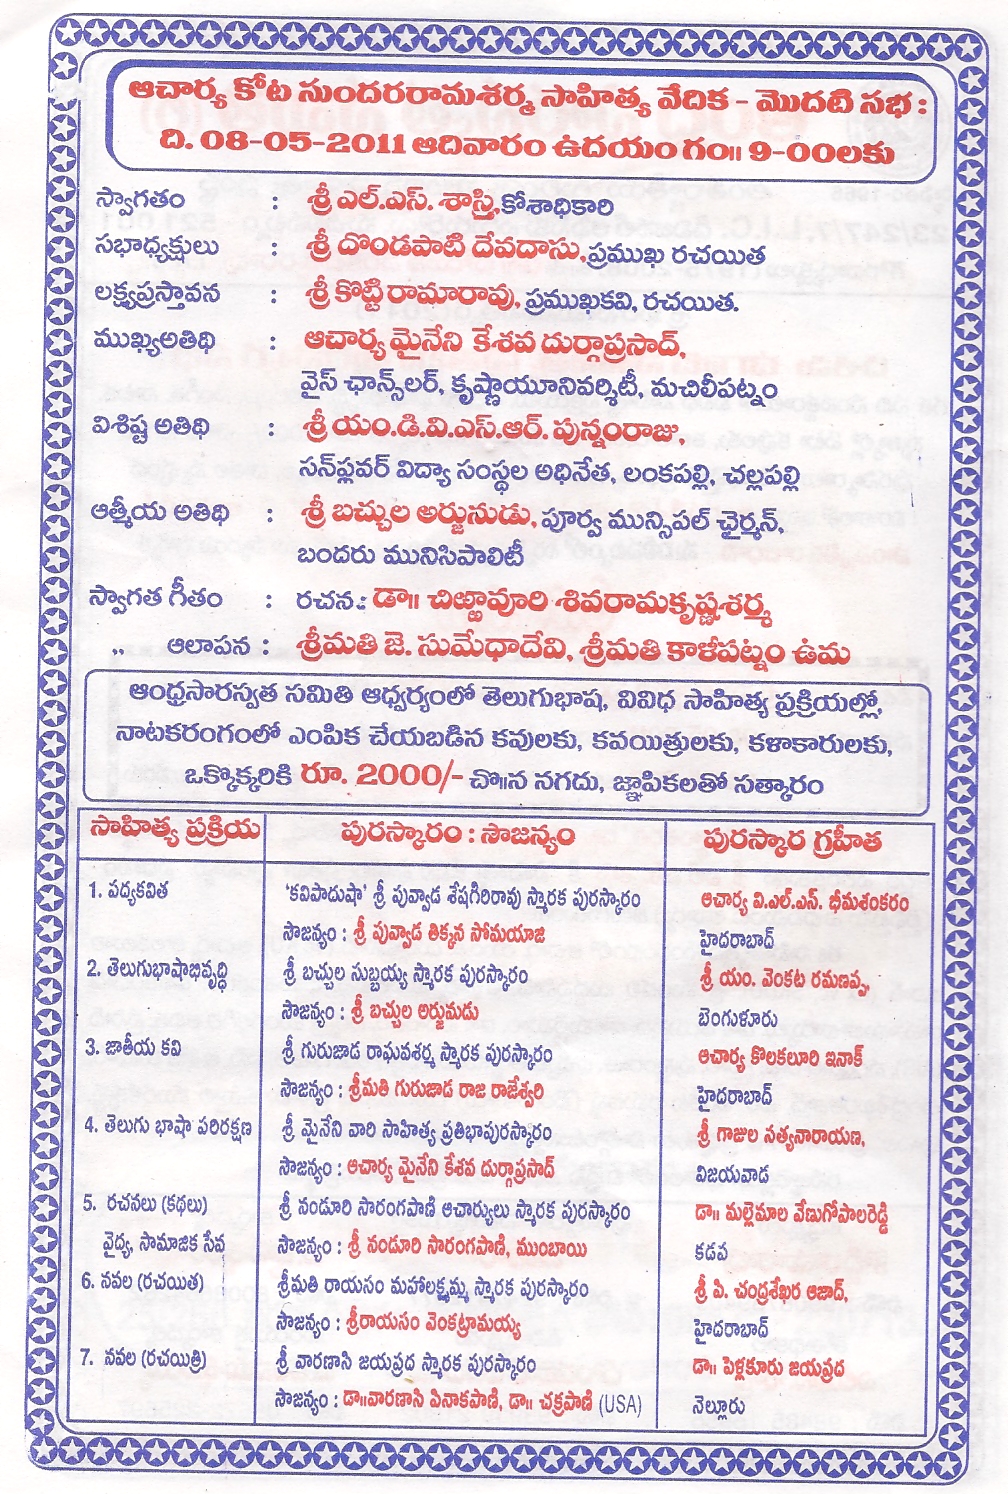 ఆచార్య కోట సుందరరామశర్మ సాహిత్య వేదిక - మొదటి సభ :
ది. 08-05-2011 ఆదివారం ఉదయం గం॥ 9-00లకు
స్వాగతం : శ్రీ ఎల్.ఎస్. శాస్త్రి, కోశాధికారి
సభాధ్యక్షులు : శ్రీ దొండపాటి దేవదాసు, ప్రముఖ రచయిత
లక్ష్యప్రస్తావన : శ్రీ కొట్టి రామారావు, ప్రముఖకవి, రచయిత.
ముఖ్యఅతిథి : ఆచార్య మైనేని కేశవ దుర్గాప్రసాద్,
వైస్ ఛాన్స్‌లర్, కృష్ణాయూనివర్శిటీ, మచిలీపట్నం
విశిష్ట అతిథి : శ్రీ యం.డి.వి.ఎస్.ఆర్. పున్నంరాజు,
సన్‌ఫ్లవర్ విద్యా సంస్థల అధినేత, లంకపల్లి, చల్లపల్లి
ఆత్మీయ అతిథి : శ్రీ బచ్చుల అర్జునుడు, పూర్వ మున్సిపల్ ఛైర్మన్,
బందరు మునిసిపాలిటీ
స్వాగత గీతం : రచన : డా॥ చిఱ్ఱావూరి శివరామకృష్ణశర్మ
,, ఆలాపన : శ్రీమతి జె. సుమేధాదేవి, శ్రీమతి కాళీపట్నం ఉమ
ఆంధ్రసారస్వత సమితి ఆధ్వర్యంలో తెలుగుభాష, వివిధ సాహిత్య ప్రక్రియల్లో,
నాటకరంగంలో ఎంపిక చేయబడిన కవులకు, కవయిత్రులకు, కళాకారులకు,
ఒక్కొక్కరికి రూ. 2000/- చొ॥న నగదు, జ్ఞాపికలతో సత్కారం
సాహిత్య ప్రక్రియ పురస్కారం : సౌజన్యం పురస్కార గ్రహీత
1. పద్యకవిత 'కవిపాదుషా' శ్రీ పువ్వాడ శేషగిరిరావు స్మారక పురస్కారం ఆచార్య వి.ఎల్.ఎస్. భీమశంకరం
సౌజన్యం : శ్రీ పువ్వాడ తిక్కన సోమయాజి హైదరాబాద్
2. తెలుగుభాషాభివృద్ధి శ్రీ బచ్చుల సుబ్బయ్య స్మారక పురస్కారం శ్రీ యం. వెంకట రమణప్ప,
సౌజన్యం : శ్రీ బచ్చుల అర్జునుడు బెంగుళూరు
3. జాతీయ కవి శ్రీ గురుజాడ రాఘవశర్మ స్మారక పురస్కారం ఆచార్య కొలకలూరి ఇనాక్
సౌజన్యం : శ్రీమతి గురుజాడ రాజ రాజేశ్వరి హైదరాబాద్
4. తెలుగు భాషా పరిరక్షణ శ్రీ మైనేని వారి సాహిత్య ప్రతిభాపురస్కారం శ్రీ గాజుల సత్యనారాయణ,
సౌజన్యం : ఆచార్య మైనేని కేశవ దుర్గాప్రసాద్ విజయవాడ
5. రచనలు (కథలు) శ్రీ నండూరి సారంగపాణి ఆచార్యులు స్మారక పురస్కారం డా॥ మల్లెమాల వేణుగోపాలరెడ్డి
వైద్య, సామాజిక సేవ సౌజన్యం : శ్రీ నండూరి సారంగపాణి, ముంబాయి కడప
6. నవల (రచయిత) శ్రీమతి రాయసం మహాలక్ష్మమ్మ స్మారక పురస్కారం శ్రీ పి. చంద్రశేఖర ఆజాద్,
సౌజన్యం : శ్రీరాయసం వెంకట్రామయ్య హైదరాబాద్
7. నవల (రచయిత్రి) శ్రీ వారణాసి జయప్రద స్మారక పురస్కారం డా॥ పెళ్లకూరు జయప్రద
సౌజన్యం : డా॥వారణాసి పినాకపాణి, డా॥ చక్రపాణి (USA) నెల్లూరు